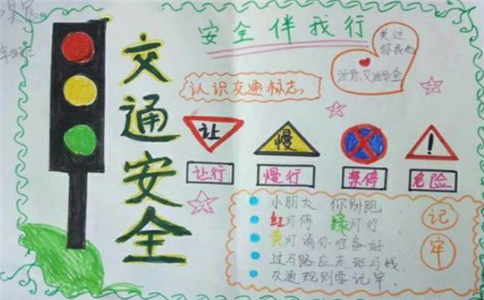 交通安全
安全伴我行
注意交通安全
认识交通标志。
让
慢
!
让行
慢行
禁停
危险
小朋友 你别跑
红灯停 绿灯行
黄灯请你准备好
过马路应走斑马线
交通规则要记牢
记牢